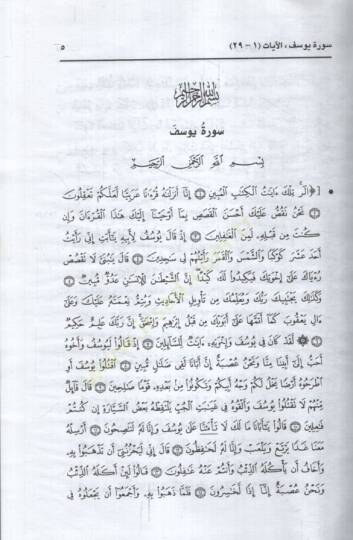 سورة يوسف، الآيات (١ - ٢٩) ٥
بسم الله الرحمن الرحيم
سورة يوسف
بِسْمِ اللَّهِ الرَّحْمَٰنِ الرَّحِيمِ
• [﴿الٓر تِلْكَ ءَايَٰتُ الْكِتَٰبِ الْمُبِينِ ۝١ إِنَّآ أَنزَلْنَٰهُ قُرْءَٰنًا عَرَبِيًّا لَّعَلَّكُمْ تَعْقِلُونَ
۝٢ نَحْنُ نَقُصُّ عَلَيْكَ أَحْسَنَ الْقَصَصِ بِمَآ أَوْحَيْنَآ إِلَيْكَ هَٰذَا الْقُرْءَانَ وَإِن
كُنتَ مِن قَبْلِهِۦ لَمِنَ الْغَٰفِلِينَ ۝٣ إِذْ قَالَ يُوسُفُ لِأَبِيهِ يَٰٓأَبَتِ إِنِّي رَأَيْتُ
أَحَدَ عَشَرَ كَوْكَبًا وَالشَّمْسَ وَالْقَمَرَ رَأَيْتُهُمْ لِي سَٰجِدِينَ ۝٤ قَالَ يَٰبُنَيَّ لَا تَقْصُصْ
رُءْيَاكَ عَلَىٰٓ إِخْوَتِكَ فَيَكِيدُوا لَكَ كَيْدًا إِنَّ الشَّيْطَٰنَ لِلْإِنسَٰنِ عَدُوٌّ مُّبِينٌ ۝٥
وَكَذَٰلِكَ يَجْتَبِيكَ رَبُّكَ وَيُعَلِّمُكَ مِن تَأْوِيلِ الْأَحَادِيثِ وَيُتِمُّ نِعْمَتَهُۥ عَلَيْكَ وَعَلَىٰٓ
ءَالِ يَعْقُوبَ كَمَآ أَتَمَّهَا عَلَىٰٓ أَبَوَيْكَ مِن قَبْلُ إِبْرَٰهِيمَ وَإِسْحَٰقَ إِنَّ رَبَّكَ عَلِيمٌ حَكِيمٌ
۝٦ لَّقَدْ كَانَ فِي يُوسُفَ وَإِخْوَتِهِۦٓ ءَايَٰتٌ لِّلسَّآئِلِينَ ۝٧ إِذْ قَالُوا لَيُوسُفُ وَأَخُوهُ
أَحَبُّ إِلَىٰٓ أَبِينَا مِنَّا وَنَحْنُ عُصْبَةٌ إِنَّ أَبَانَا لَفِي ضَلَٰلٍ مُّبِينٍ ۝٨ اقْتُلُوا يُوسُفَ أَوِ
اطْرَحُوهُ أَرْضًا يَخْلُ لَكُمْ وَجْهُ أَبِيكُمْ وَتَكُونُوا مِنۢ بَعْدِهِۦ قَوْمًا صَٰلِحِينَ ۝٩ قَالَ قَآئِلٌ
مِّنْهُمْ لَا تَقْتُلُوا يُوسُفَ وَأَلْقُوهُ فِي غَيَٰبَتِ الْجُبِّ يَلْتَقِطْهُ بَعْضُ السَّيَّارَةِ إِن كُنتُمْ
فَٰعِلِينَ ۝١٠ قَالُوا يَٰٓأَبَانَا مَا لَكَ لَا تَأْمَ۫نَّا عَلَىٰ يُوسُفَ وَإِنَّا لَهُۥ لَنَٰصِحُونَ ۝١١ أَرْسِلْهُ
مَعَنَا غَدًا يَرْتَعْ وَيَلْعَبْ وَإِنَّا لَهُۥ لَحَٰفِظُونَ ۝١٢ قَالَ إِنِّي لَيَحْزُنُنِيٓ أَن تَذْهَبُوا بِهِۦ
وَأَخَافُ أَن يَأْكُلَهُ الذِّئْبُ وَأَنتُمْ عَنْهُ غَٰفِلُونَ ۝١٣ قَالُوا لَئِنْ أَكَلَهُ الذِّئْبُ
وَنَحْنُ عُصْبَةٌ إِنَّآ إِذًا لَّخَٰسِرُونَ ۝١٤ فَلَمَّا ذَهَبُوا بِهِۦ وَأَجْمَعُوٓا أَن يَجْعَلُوهُ فِي